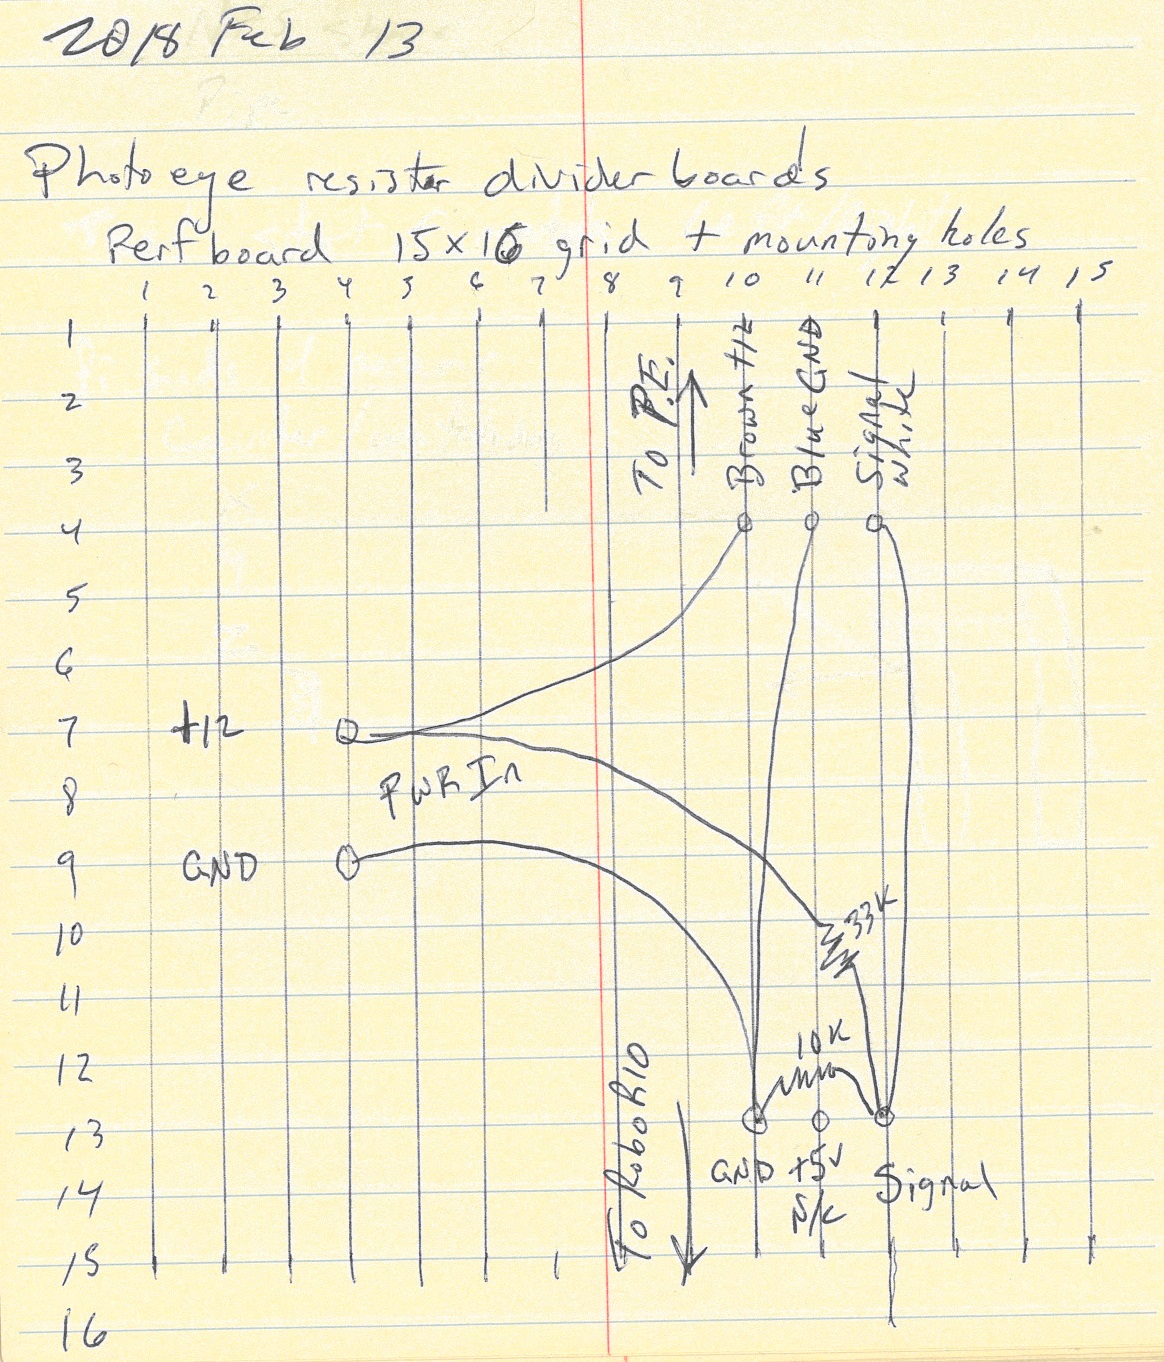 2018 Feb 13
Photo eye resister divider boards
Perfboard 15x16 grid + mounting holes
1 2 3 4 5 6 7 8 9 10 11 12 13 14 15
1
2
3
4
5
6
7
8
9
10
11
12
13
14
15
16
To P.E.
Brown +12
Blue GND
Signal
White
+12
PWR In
GND
33K
10K
To RoboRIO
GND +5V Signal
N/C